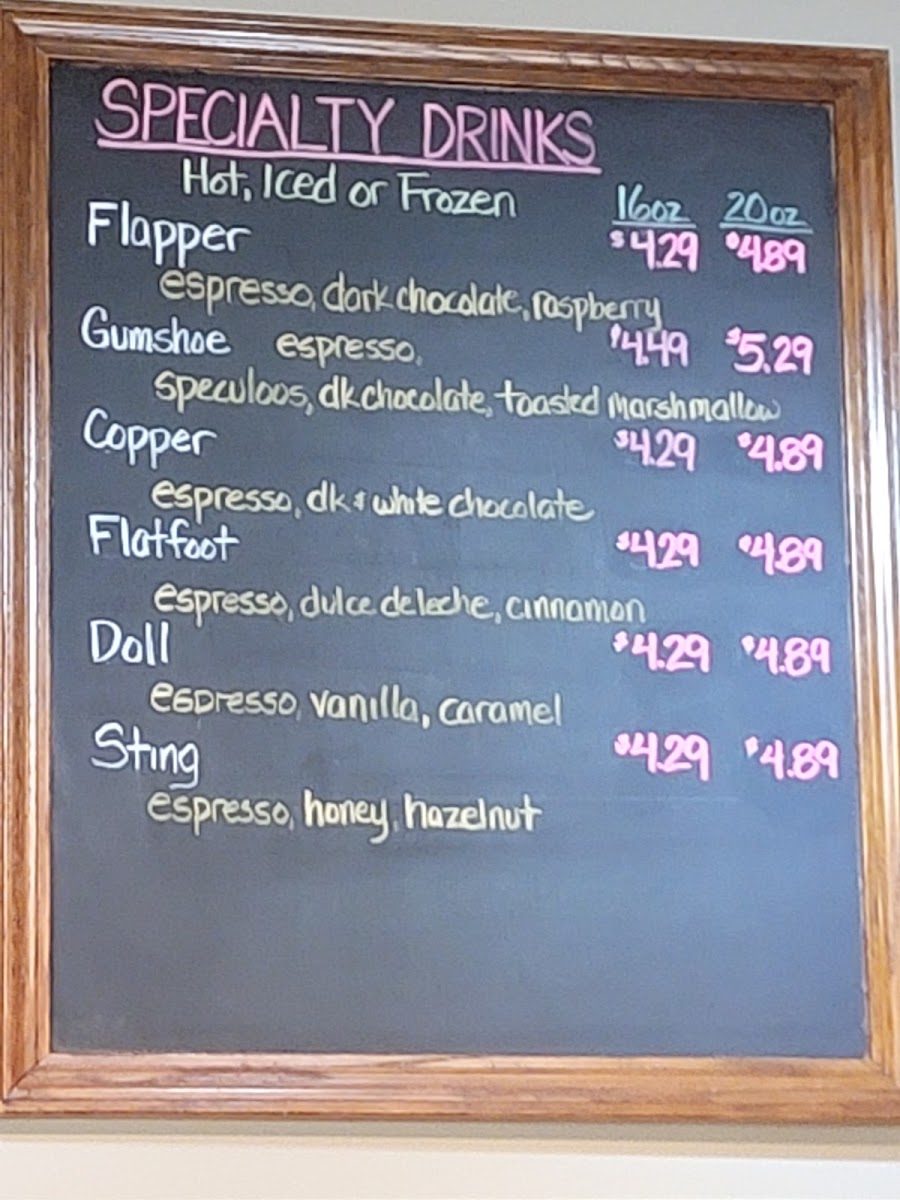 SPECIALTY DRINKS
Hot, Iced or Frozen 16oz 20oz
Flapper $4.29 $4.89
espresso, dark chocolate, raspberry
Gumshoe espresso, $4.49 $5.29
speculoos, dk chocolate, toasted marshmallow
Copper $4.29 $4.89
espresso, dk & white chocolate
Flatfoot $4.29 $4.89
espresso, dulce de leche, cinnamon
Doll $4.29 $4.89
espresso, vanilla, caramel
Sting $4.29 $4.89
espresso, honey, hazelnut